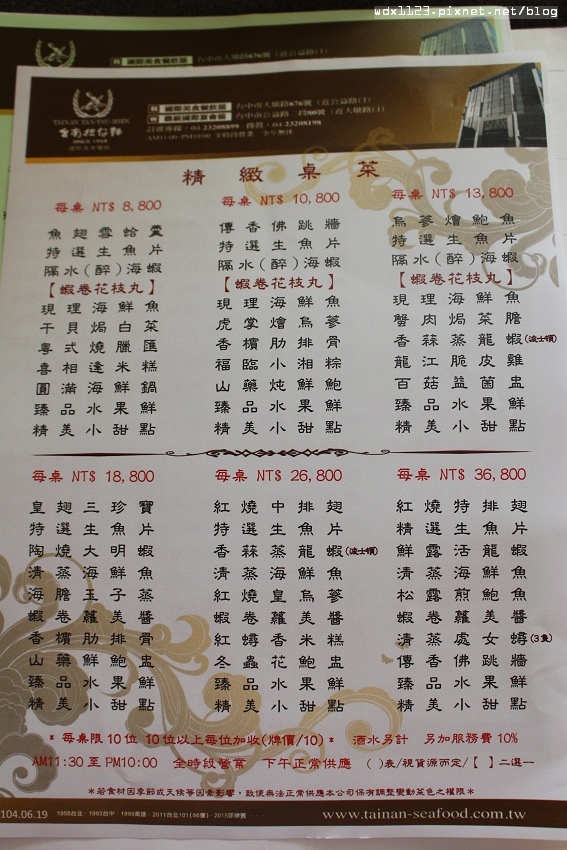 wdx1123.pixnet.net/blog
TAINAN TAN-TSU-MIEN
台南担仔麵
SINCE 1958
國際美食餐飲館 台中市大墩路676號（近公益路口）
台中市公益路二段80號（近大墩路口）
訂席專線：04-23208899 傳真：04-23208198
精緻桌菜
每桌 NT$ 8,800
魚翅雪蛤羹
特選生魚片
隔水(醉)海蝦
【蝦卷花枝丸】
現理海鮮魚
干貝焗白菜
粵式燒臘匯
喜相逢米糕
圓滿海鮮鍋
臻品水果鮮
精美小甜點
每桌 NT$ 10,800
傳香佛跳牆
特選生魚片
隔水(醉)海蝦
【蝦卷花枝丸】
現理海鮮魚
虎掌燴烏蔘
香檳肋排骨
福臨小湘粽
山藥炖鮮鮑
臻品水果鮮
精美小甜點
每桌 NT$ 13,800
烏蔘燴鮑魚
特選生魚片
隔水(醉)海蝦
【蝦卷花枝丸】
現理海鮮魚
蟹肉焗菜膽
香蒜蒸龍蝦(波士頓)
龍江脆皮雞
百菇益菌盅
臻品水果鮮
精美小甜點
每桌 NT$ 18,800
皇翅三珍寶
特選生魚片
陶燒大明蝦
清蒸海鮮魚
海膽玉子蒸
蝦卷蘿美醬
香檳肋排骨
山藥鮮鮑盅
臻品水果鮮
精美小甜點
每桌 NT$ 26,800
紅燒中排翅
特選生魚片
香蒜蒸龍蝦(波士頓)
清蒸海鮮魚
紅燒皇烏蔘
蝦卷蘿美醬
紅蟳香米糕
冬蟲花鮑盅
臻品水果鮮
精美小甜點
每桌 NT$ 36,800
紅燒特排翅
精選生魚片
鮮露活龍蝦
清蒸海鮮魚
松露煎鮑魚
蝦卷蘿美醬
清蒸處女蟳(3隻)
傳香佛跳牆
臻品水果鮮
精美小甜點
* 每桌限10位 10位以上每位加收(牌價/10) * 酒水另計 另加服務費10%
AM11:30至PM10:00 全時段營業 下午正常供應 ( )表/視貨源而定/【 】二選一
*若食材因季節或天候等因素影響，致使無法正常供應本公司保有調整變動菜色之權限*
104.06.19
1958台北．1993台中．1999高雄．2011台北101(86樓)．2015菲律賓
www.tainan-seafood.com.tw